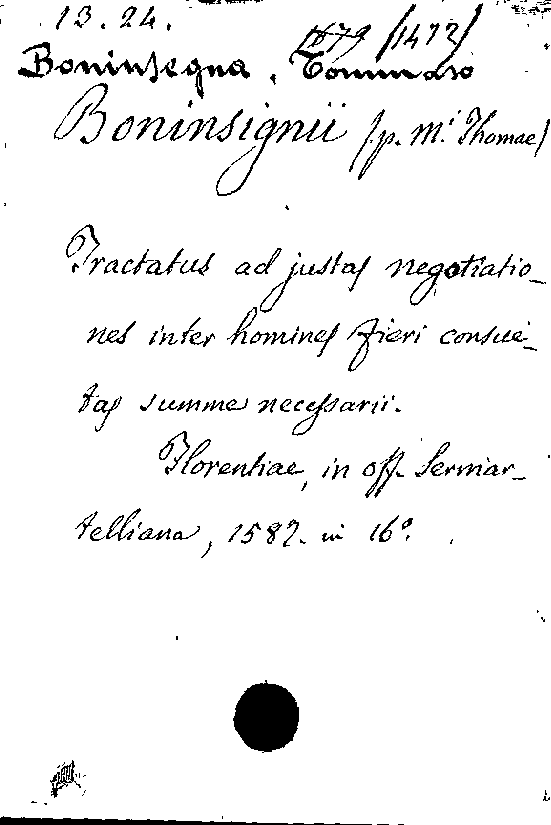 13.24.
1679 /1472/
Boninsegna, Tommaso
Boninsignii /p. M.i Thomae/
Tractatus ad justas negotiatio-
nes inter homines fieri consue-
tas summe necessarii.
Florentiae, in off. Sermar-
telliana, 1587. in 16º.